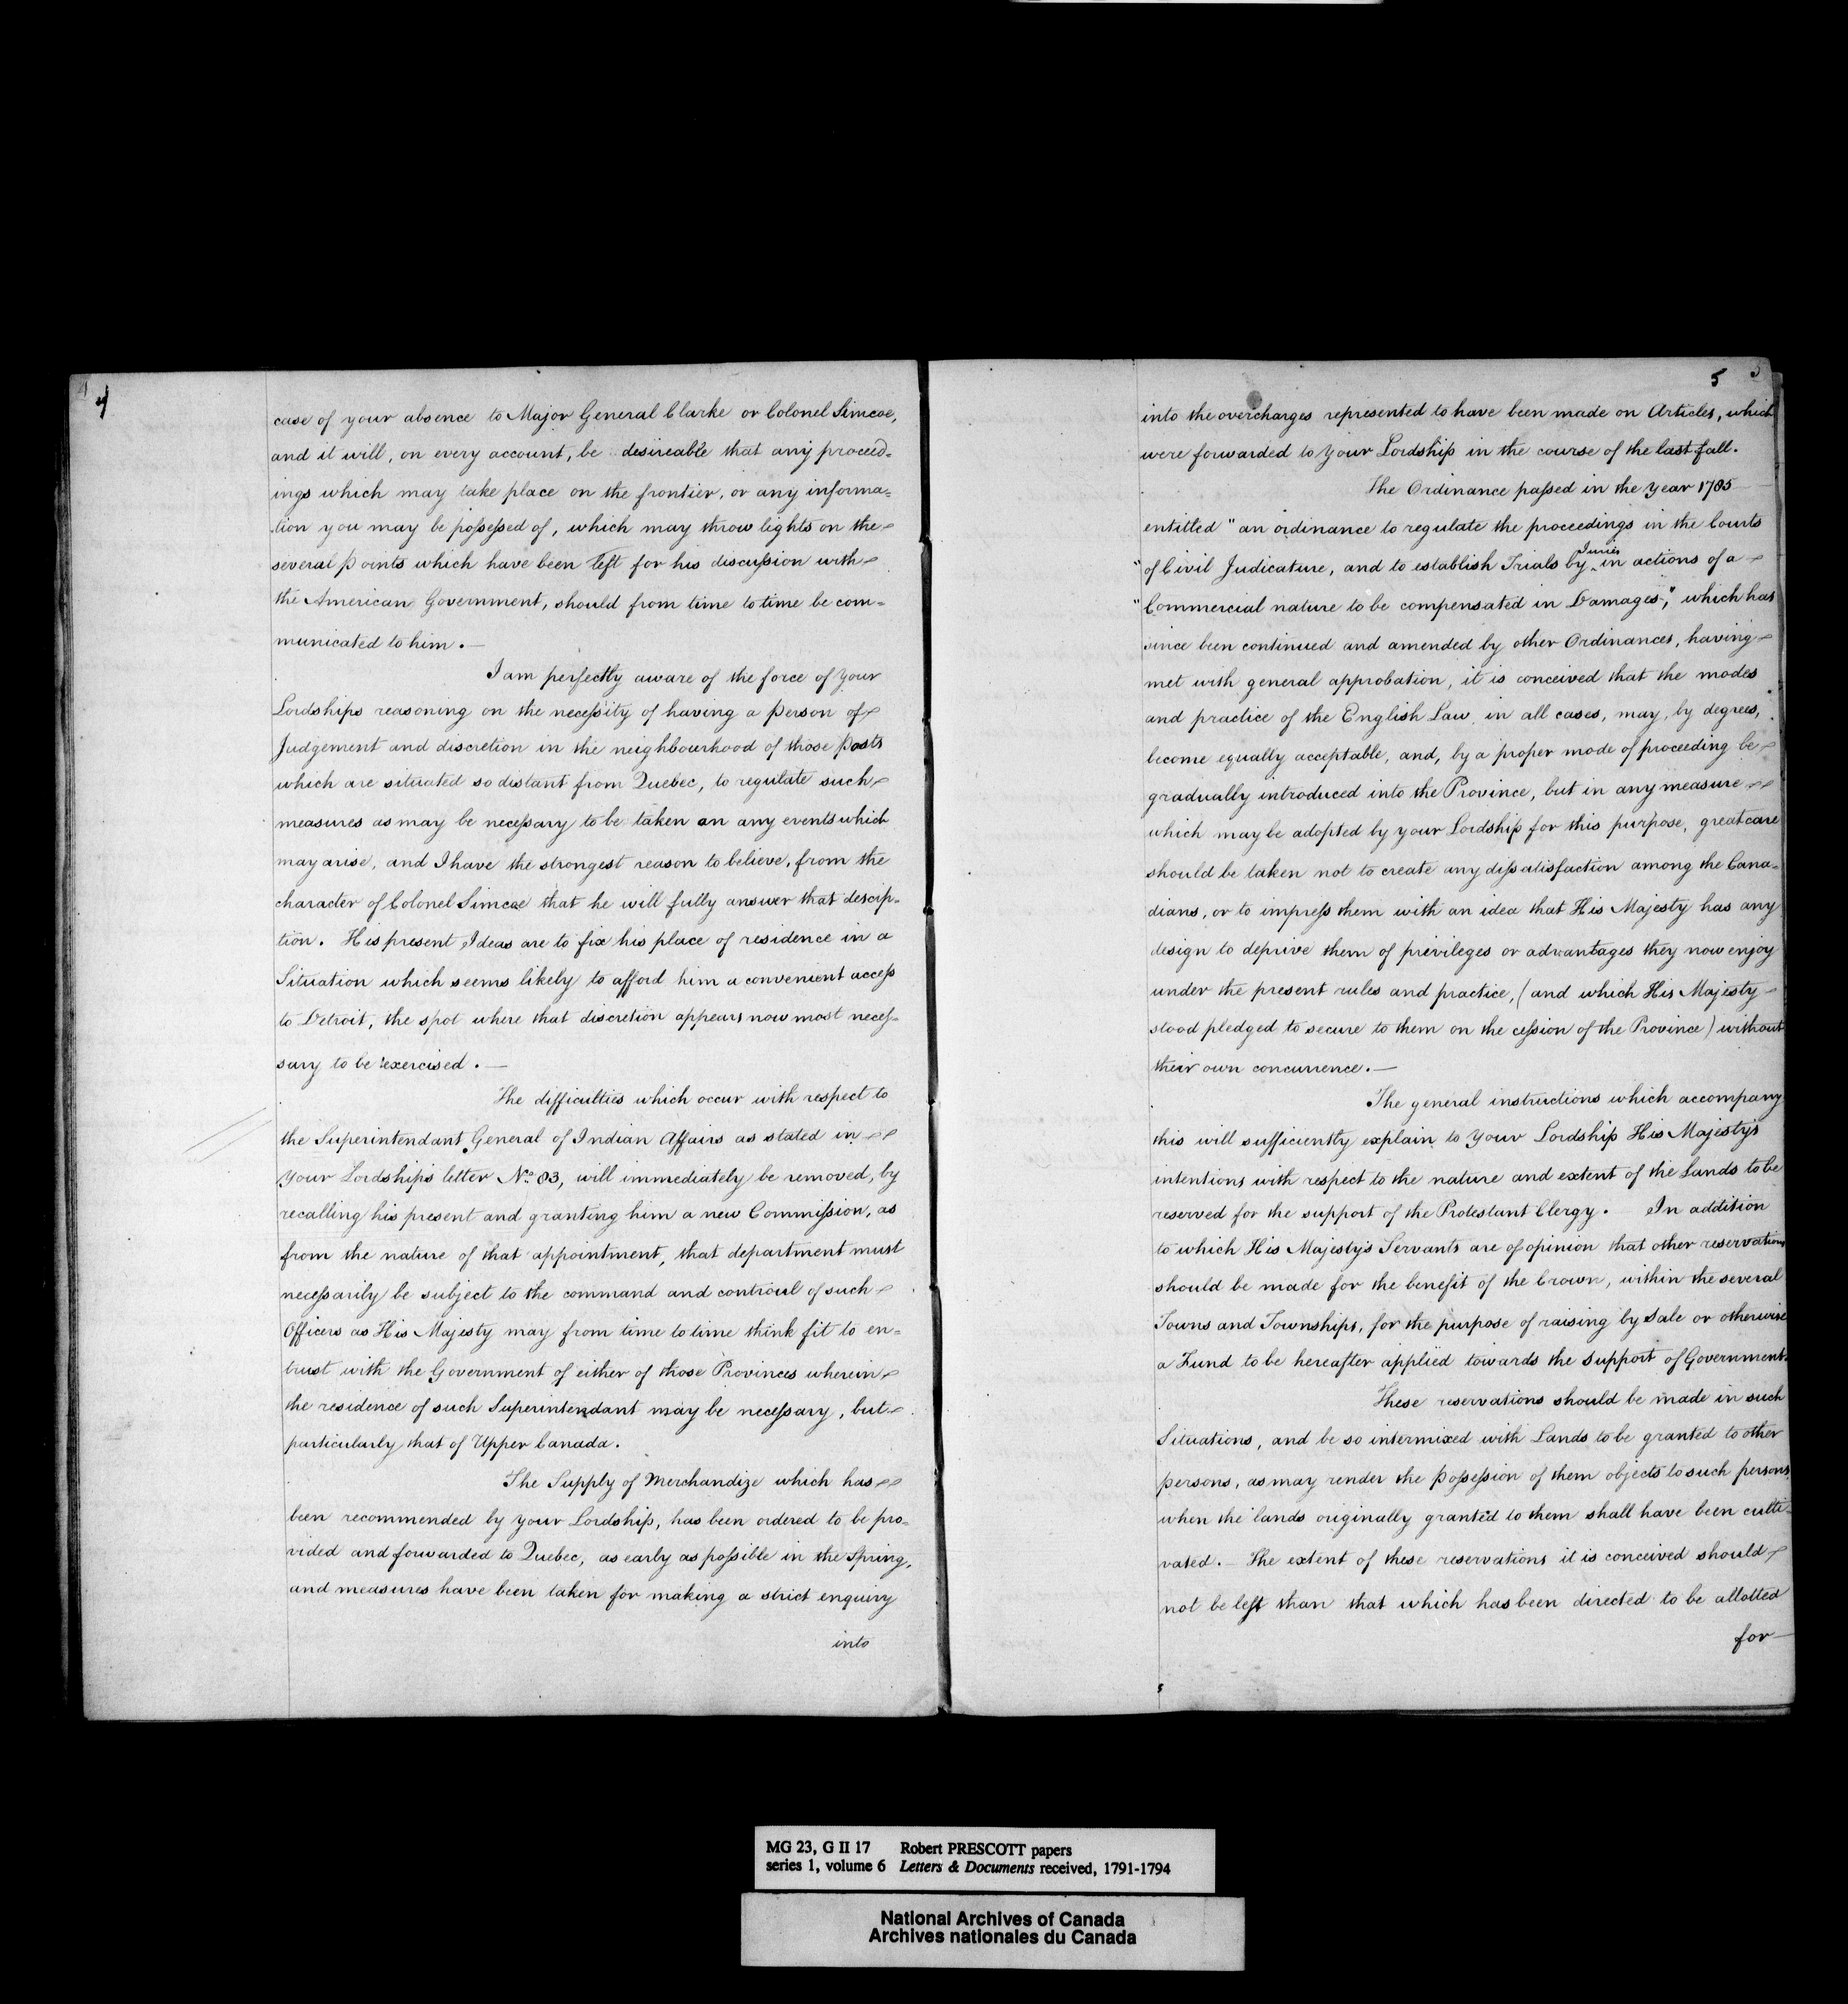 4
case of your absence to Major General Clarke or Colonel Simcoe,
and it will, on every account, be desireable that any proceed=
ings which may take place on the frontier, or any informa=
tion you may be possessed of, which may throw lights on the
several points which have been left for his discussion with
the American Government, should from time to time be com=
municated to him. —
I am perfectly aware of the force of your
Lordships reasoning on the necessity of having a person of
Judgement and discretion in the neighbourhood of those Posts
which are situated so distant from Quebec, to regulate such
measures as may be necessary to be taken on any events which
may arise, and I have the strongest reason to believe, from the
character of Colonel Simcoe that he will fully answer that descip=
tion. His present Ideas are to fix his place of residence in a
Situation which seems likely to afford him a convenient access
to Detroit, the spot where that discretion appears now most neces=
sary to be exercised. —
The difficulties which occur with respect to
the Superintendant General of Indian Affairs as stated in
your Lordship's letter No. 83, will immediately be removed, by
recalling his present and granting him a new Commission, as
from the nature of that appointment, that department must
necessarily be subject to the command and controul of such
Officers as His Majesty may from time to time think fit to en=
trust with the Government of either of those Provinces wherein
the residence of such Superintendant may be necessary, but
particularly that of Upper Canada.
The Supply of Merchandize which has
been recommended by your Lordship, has been ordered to be pro=
vided and forwarded to Quebec, as early as possible in the Spring,
and measures have been taken for making a strict enquiry
into
5
into the overcharges represented to have been made on Articles, which
were forwarded to your Lordship in the course of the last fall.
The Ordinance passed in the year 1785
entitled "an ordinance to regulate the proceedings in the Courts
"of Civil Judicature, and to establish Trials by Juries in actions of a
"Commercial nature to be compensated in Damages," which has
since been continued and amended by other Ordinances, having
met with general approbation, it is conceived that the modes
and practice of the English Law, in all cases, may, by degrees,
become equally acceptable, and, by a proper mode of proceeding be
gradually introduced into the Province, but in any measure
which may be adopted by your Lordship for this purpose, great care
should be taken not to create any dissatisfaction among the Cana=
dians, or to impress them with an idea that His Majesty has any
design to deprive them of privileges or advantages they now enjoy
under the present rules and practice, (and which His Majesty
stood pledged to secure to them on the cession of the Province) without
their own concurrence. —
The general instructions which accompany
this will sufficiently explain to your Lordship His Majesty's
intentions with respect to the nature and extent of the Lands to be
reserved for the support of the Protestant Clergy. In addition
to which His Majesty's Servants are of opinion that other reservations
should be made for the benefit of the Crown, within the several
Towns and Townships, for the purpose of raising by Sale or otherwise
a Fund to be hereafter applied towards the support of Government.
These reservations should be made in such
Situations, and be so intermixed with Lands to be granted to other
persons, as may render the possession of them objects to such persons
when the lands originally granted to them shall have been culti=
vated. — The extent of these reservations it is conceived should
not be less than that which has been directed to be allotted
for
MG 23, G II 17 Robert PRESCOTT papers
series 1, volume 6 Letters & Documents received, 1791-1794
National Archives of Canada
Archives nationales du Canada